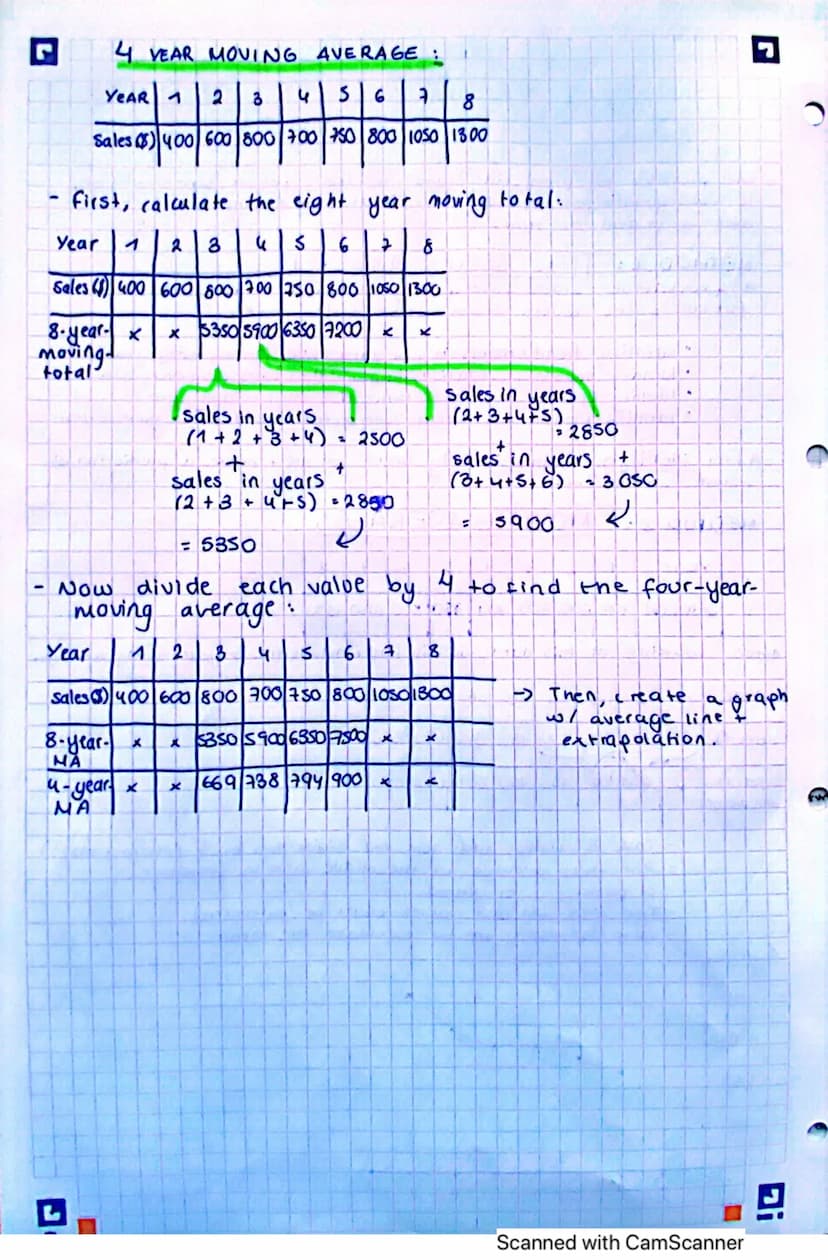 4 YEAR MOVING AVERAGE :
YEAR 1 2 3 4 5 6 7 8
Sales ($) 400 600 800 700 750 800 1050 1300
- first, calculate the eight year moving total:
Year 1 2 3 4 5 6 7 8
Sales ($) 400 600 800 700 750 800 1050 1300
8-year- x x 5350 5900 6350 7200 x x
moving-
total
sales in years
(1 + 2 + 3 + 4) = 2500
+ +
sales in years
(2 + 3 + 4 + 5) = 2850
= 5350
sales in years
(2+3+4+5)
= 2850
+
sales in years +
(3+4+5+6) = 3050
= 5900
- Now divide each value by 4 to find the four-year-
moving average :
Year 1 2 3 4 5 6 7 8
Sales ($) 400 600 800 700 750 800 1050 1300
8-year- x x 5350 5900 6350 7200 x x
MA
4-year- x x 669 738 794 900 x x
MA
→ Then, create a graph
w/ average line +
extrapolation.
Scanned with CamScanner